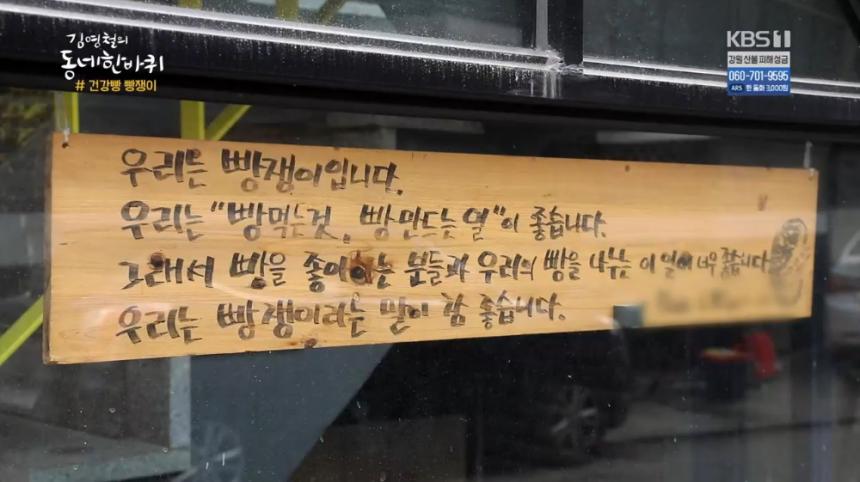 김영철의
동네한바퀴
# 건강빵 빵쟁이
KBS1
강원 산불 피해성금
060-701-9595
ARS 한 통화 3,000원
우리는 빵쟁이입니다.
우리는 "빵먹는것, 빵만드는일"이 좋습니다.
그래서 빵을 좋아하는 분들과 우리의 빵을 나누는 이 일이 너무 좋습니다
우리는 빵쟁이라는 말이 참 좋습니다.